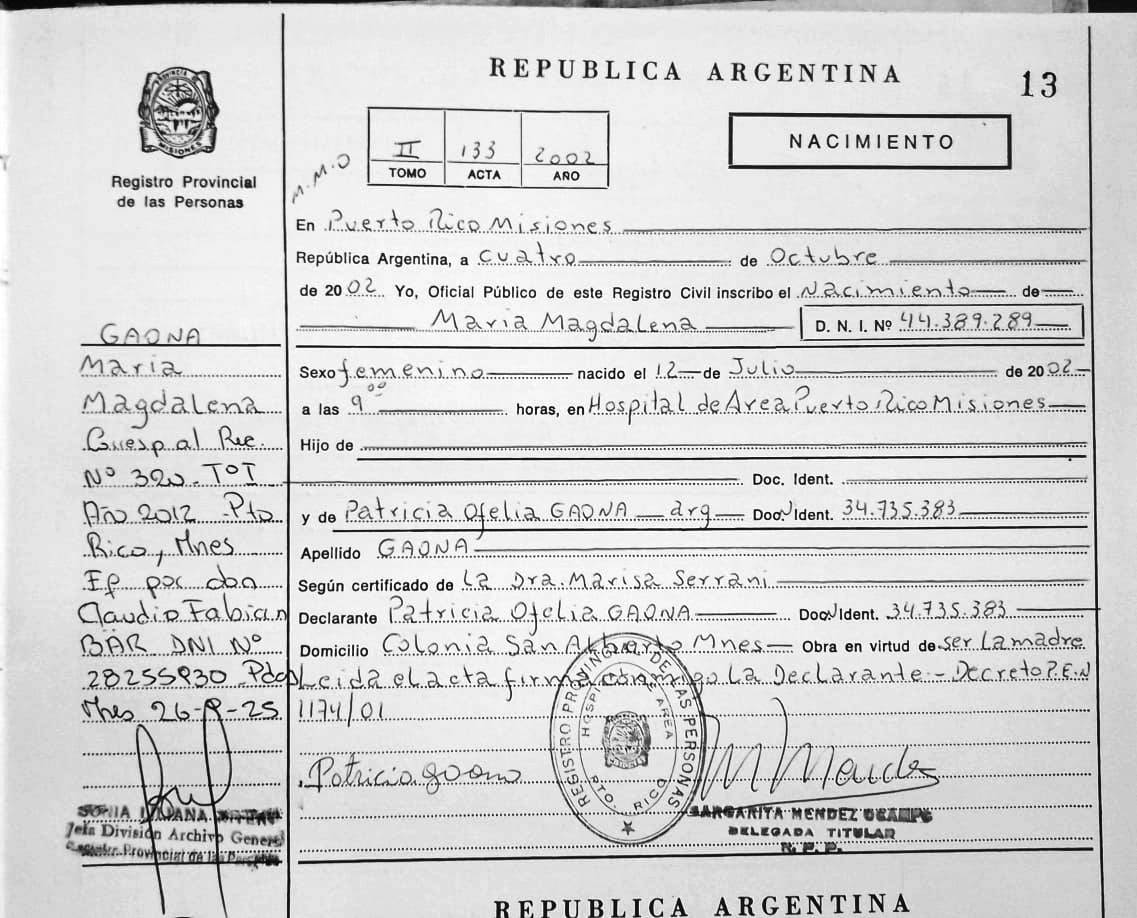 REPUBLICA ARGENTINA
13
PROVINCIA DE MISIONES
Registro Provincial
de las Personas
M.M.O
II 133 2002
TOMO ACTA AÑO
NACIMIENTO
En Puerto Rico Misiones
República Argentina, a cuatro de Octubre
de 2002 Yo, Oficial Público de este Registro Civil inscribo el Nacimiento de
Maria Magdalena D. N. I. Nº 44.389.289
Sexo femenino nacido el 12 de Julio de 2002
a las 9⁰⁰ horas, en Hospital de Area Puerto Rico Misiones
Hijo de
Doc. Ident.
y de Patricia Ofelia GAONA arg Doc. Ident. 34.735.383
Apellido GAONA
Según certificado de La Dra. Marisa Serrani
Declarante Patricia Ofelia GAONA Doc. Ident. 34.735.383
Domicilio Colonia San Alberto Mnes Obra en virtud de ser La madre
Leida el acta firma conmigo La Declarante - Decreto P.E.N
1174/01
GAONA
Maria
Magdalena
al
Nº 320 Tº I
Año 2012 Pto
Rico, Mnes
por
Claudio Fabian
BÄR DNI Nº
28255930
26-8-25
Patricia gaona
M Mendez
REGISTRO PROVINCIAL DE LAS PERSONAS
HOSPITAL DE AREA
PTO. RICO
SONIA
Jefa División Archivo General
Registro Provincial de las Personas
MARGARITA MENDEZ OCAMPO
DELEGADA TITULAR
R. P. P.
REPUBLICA ARGENTINA